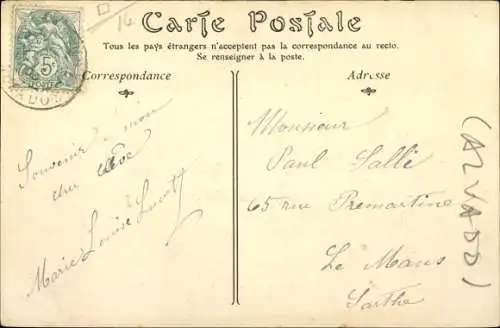 14
Carte Postale
Tous les pays étrangers n'acceptent pas la correspondance au recto.
Se renseigner à la poste.
Correspondance
Adresse
5c
Souvenir à mon
cher
Marie Louise
Monsieur
Paul Sallé
65 rue Premartine
Le Mans
Sarthe
(CALVADOS)